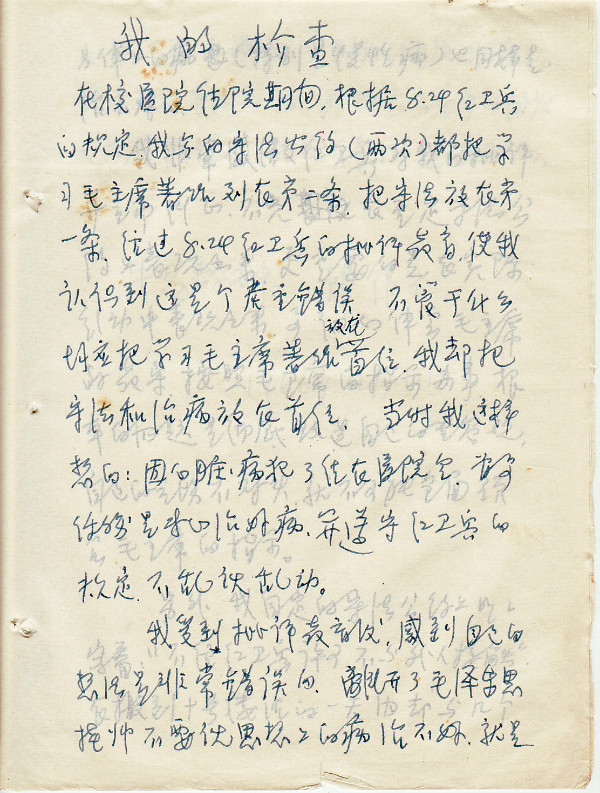 我的检查
在校医院住院期间,根据8.24红卫兵
的规定,我写的守法公约(两次)都把学
习毛主席著作列在第二条,把守法放在第
一条,经过8.24红卫兵的批评教育,使我
认识到这是个严重错误 不管干什么
都应把学习毛主席著作放在首位,我却把
守法和治病放在首位, 当时我这样
想的:因心脏病犯了住在医院里,首要
任务是安心治好病,并遵守红卫兵的
规定,不乱说乱动。
我受到批评教育后,感到自己的
想法是非常错误的,离开了毛泽东思
想 不要说思想上的病治不好,就是